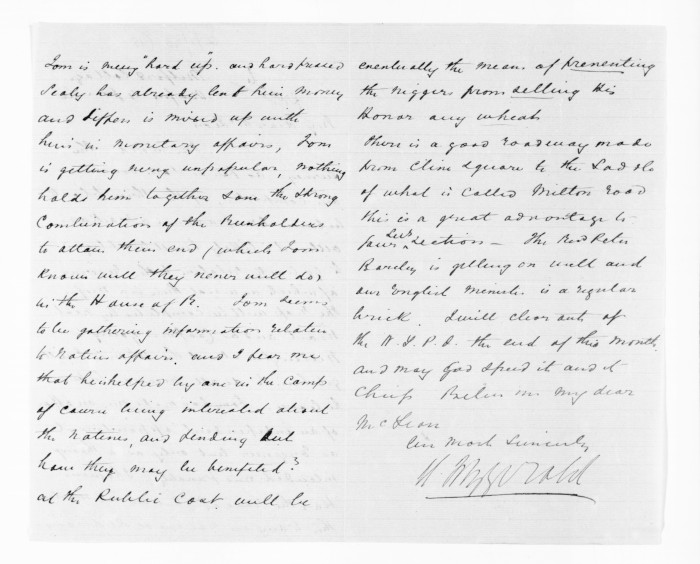 Tom is very "hard up". and hard pressed
Sealy has already lent him money
and Tiffen is mixed up with
him in monetary affairs, Tom
is getting very unpopular, nothing
holds him together save the strong
Combination of the Runholders
to attain their end (which Tom
knows well they never will do)
in the House of R. Tom seems
to be gathering information relative
to Native affairs. and I fear me
that he is helped by one in the camp
of course being interested about
the Natives, and finding out
how they may be benefited?
at the Public Cost. will be
eventually the means of preventing
the niggers from selling His
Honor any wheat
There is a good roadway made
from Clive Square to the
of what is called Milton Road
this is a great advantage to
your Sub Section — The Rev Peter
Barclay is getting on well and
our English Minister is a regular
brick. I will clear out of
the the end of this month.
and may God speed it and it
Chief Believe me my dear
McLean
Yours Most Sincerely
Fitzgerald